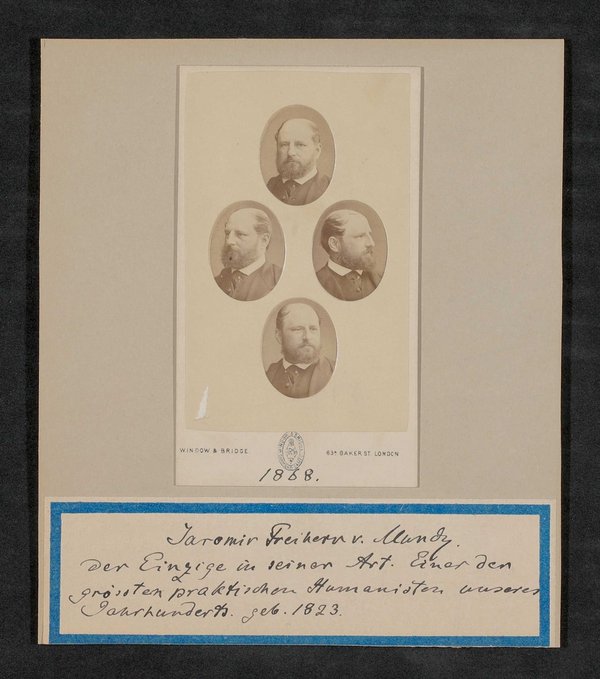 WINDOW & BRIDGE.
63A BAKER ST. LONDON
1868.
Jaromir Freiherr v. Mundy.
Der Einzige in seiner Art. Einer den
grössten praktischen Humanisten unseres
Jahrhunderts. geb. 1823.